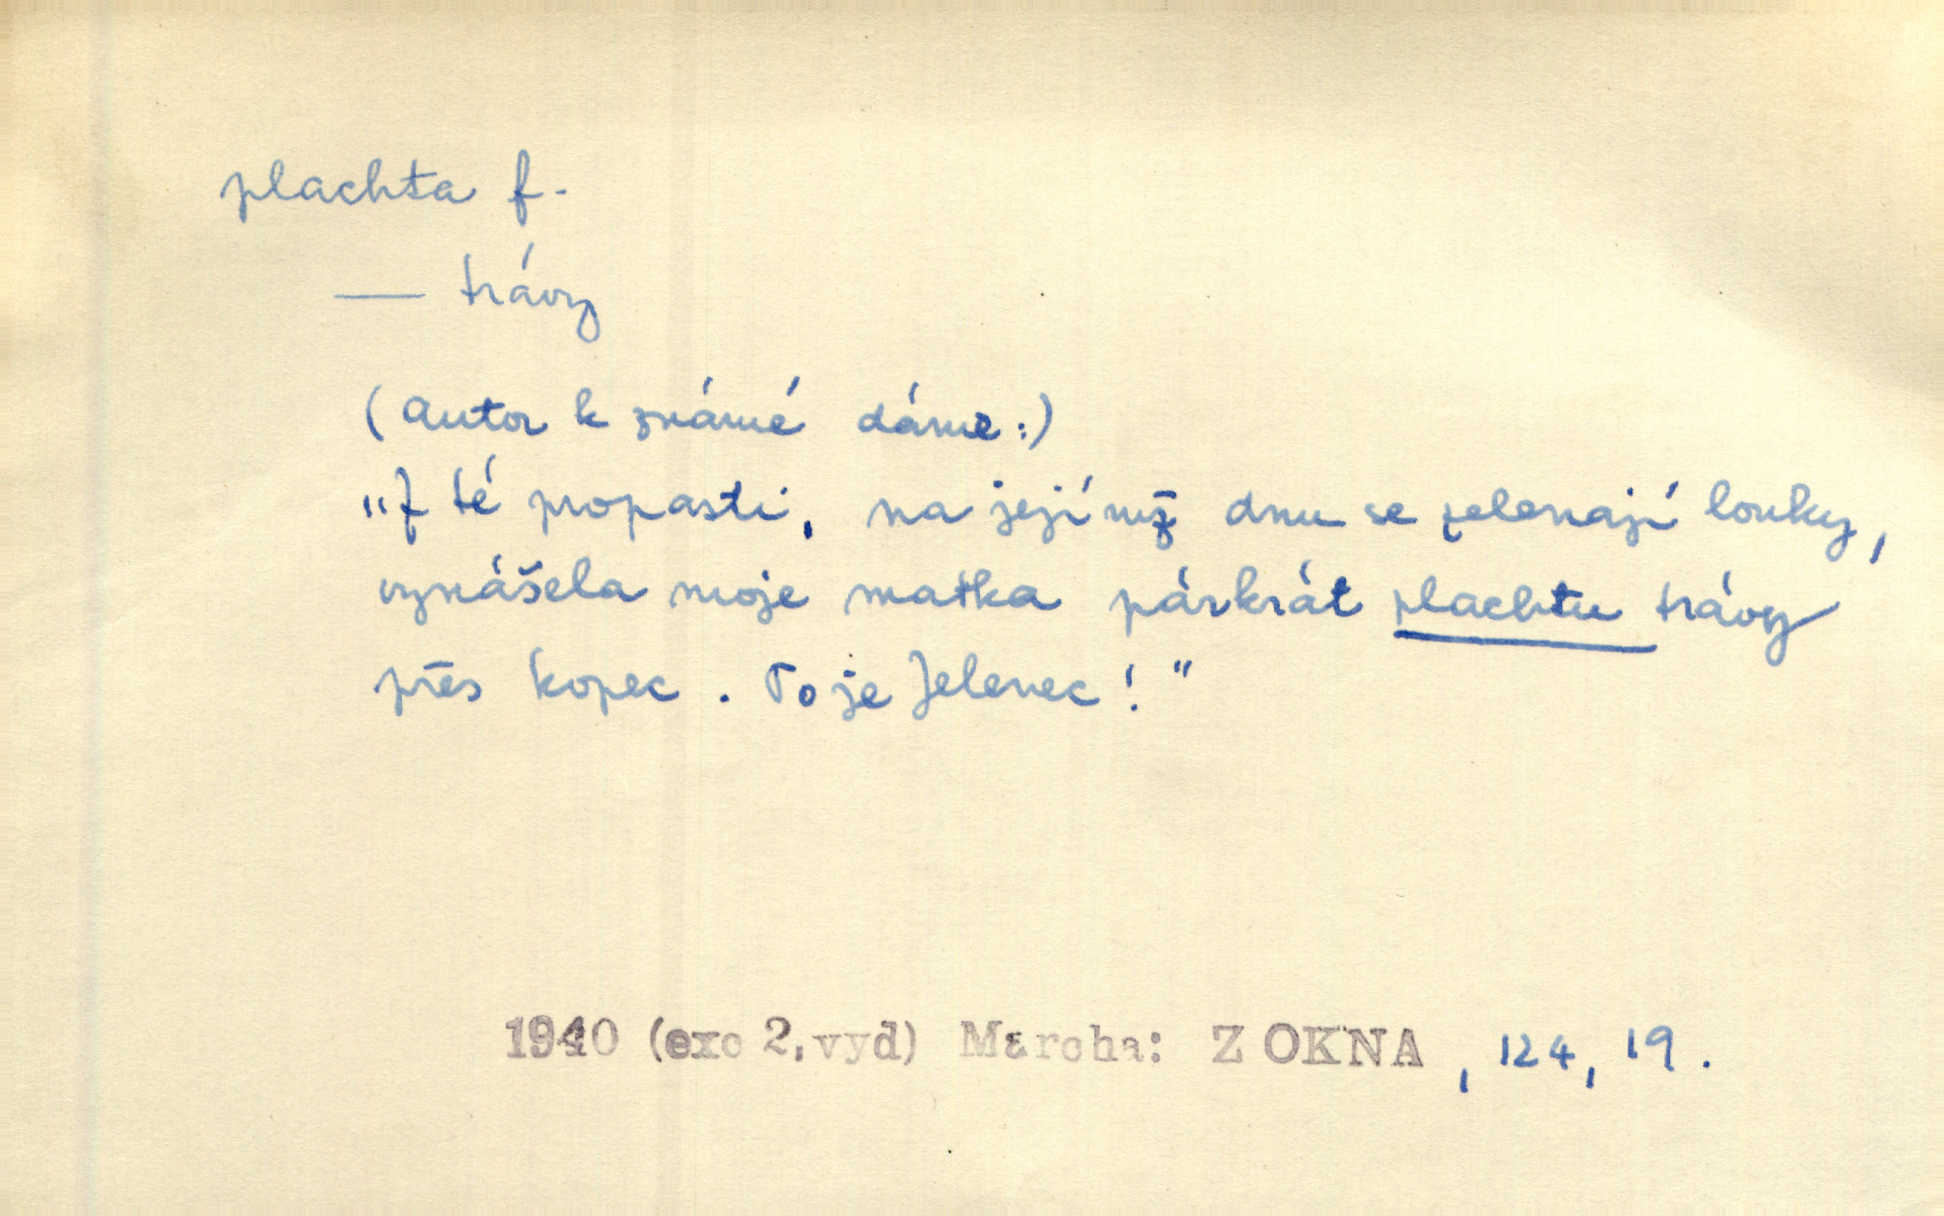 plachta f.
— trávy
(autor k známé dáme:)
"Z té propasti, na jejímž dnu se zelenají louky,
vynášela moje matka párkrát plachtu trávy
přes kopec. To je Jelenec!"
1940 (exc 2.vyd) Marcha: Z OKNA, 124, 19.